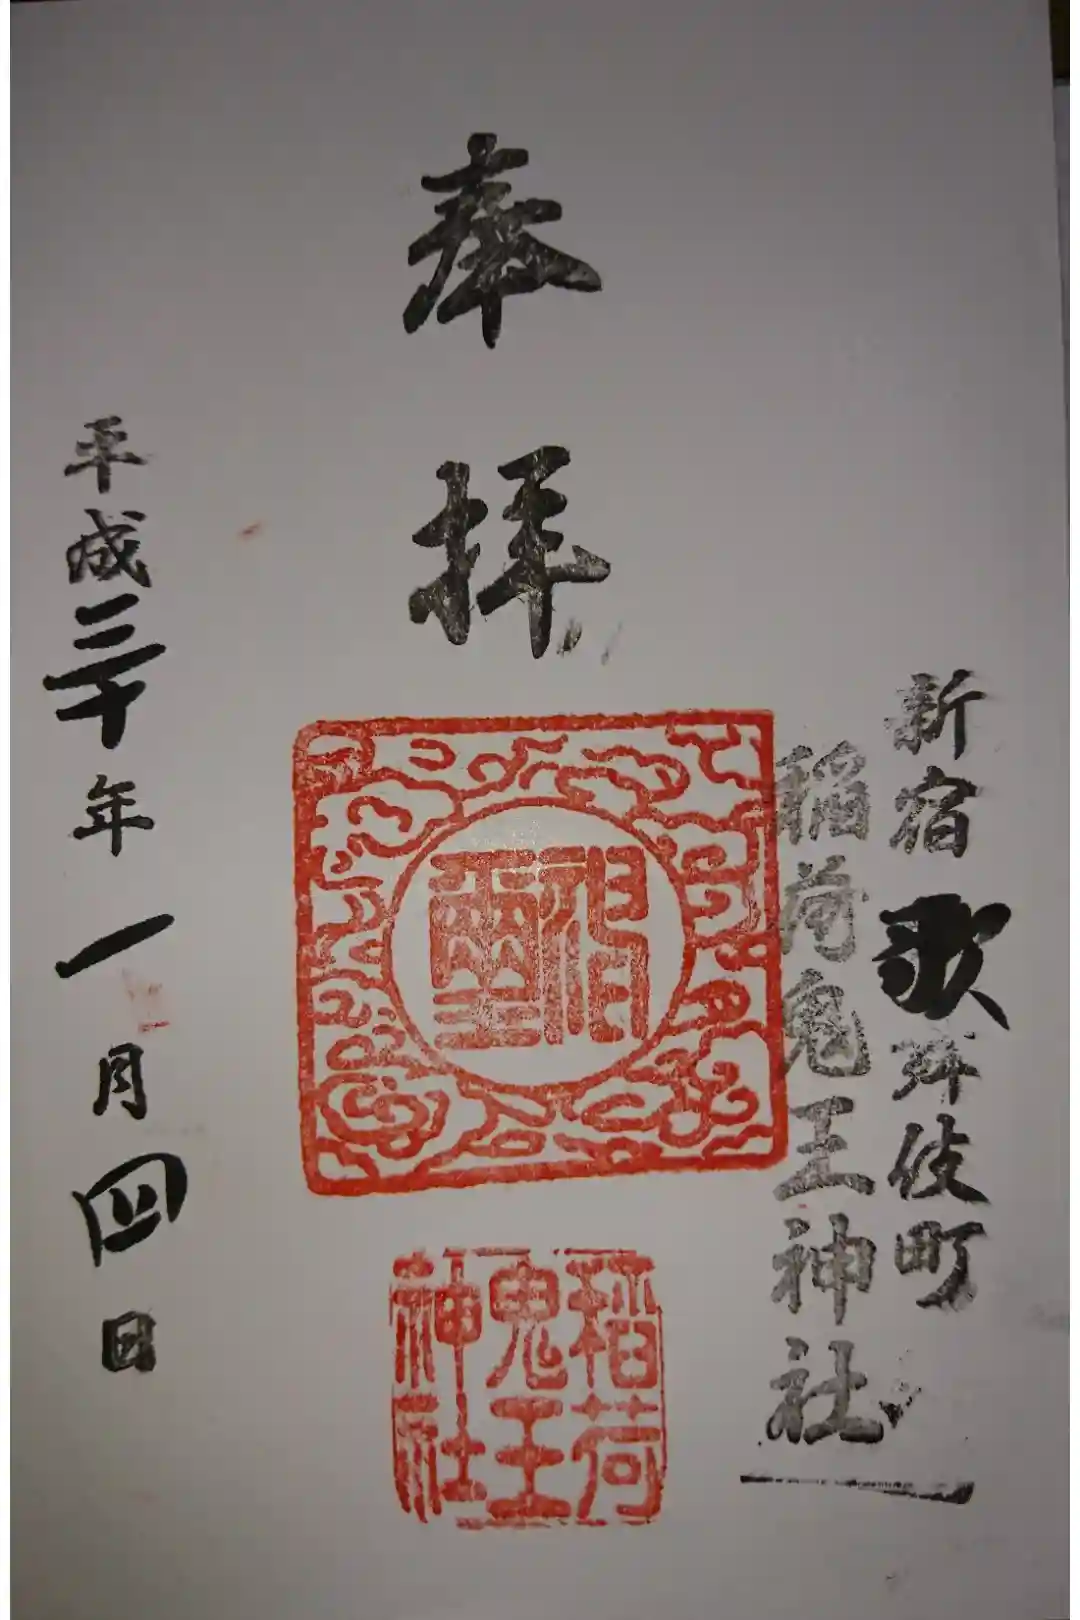 新宿歌舞伎町
稲荷鬼王神社
奉拝
稲荷
鬼王
神社
平成三十年一月四日